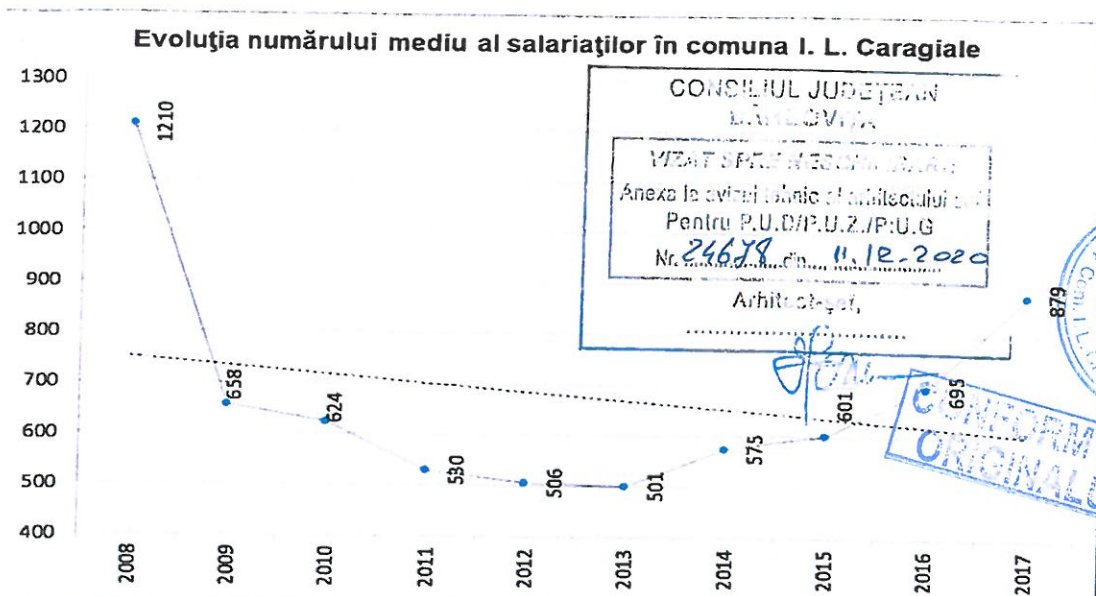 Evoluţia numărului mediu al salariaţilor în comuna I. L. Caragiale
1300
1200
1100
1000
900
800
700
600
500
400
1210
658
624
530
506
501
575
601
695
879
2008
2009
2010
2011
2012
2013
2014
2015
2016
2017
CONSILIUL JUDEŢEAN
DÂMBOVIŢA
VIZAT SPRE NESCHIMBARE
Anexa la avizul tehnic al arhitectului şef
Pentru P.U.D/P.U.Z./P.U.G
Nr. 24678 din 11.12.2020
Arhitect-şef,
CONFORM
ORIGINALU
Com. I. L.